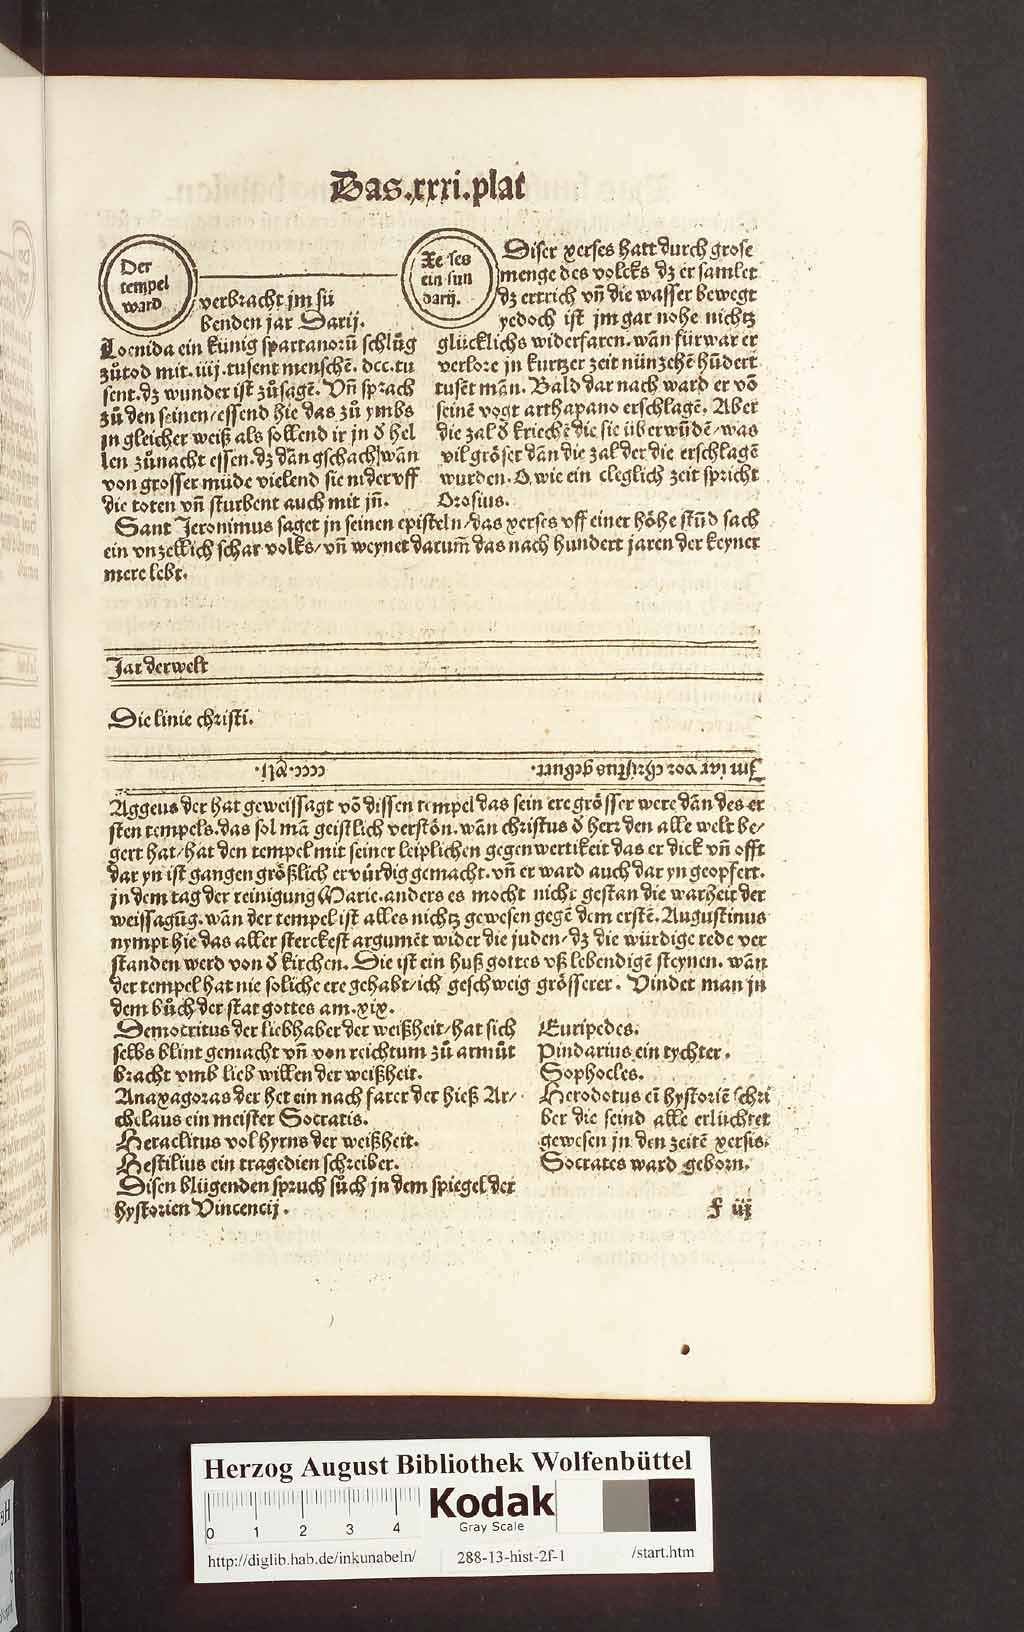 Das.xxxi.plat
Der
tempel
ward
verbracht jm sü
benden jar Darij.
Leonida ein künig spartanorū schlůg
zůtod mit.iiij.tusent menschē. dcc.tu
sent.dz wunder ist zůsagē. Vn̄ sprach
zů den seinen/essend hie das zů ymbs
jn gleicher weiß als sollend ir jn d̕ hel
len zůnacht essen.dz dān gschach/wān
von grosser müde vielend sie nider vff
die toten vn̄ sturbent auch mit jn̄.
Xerses
ein sun
darij.
Diser xerses hatt durch grose
menge des volcks dz er samlet
dz ertrich vn̄ die wasser bewegt
yedoch ist jm gar nohe nichtz
glücklichs widerfaren. wān fürwar er
verlore jn kurtzer zeit nünzehē hūdert
tusēt mān. Bald dar nach ward er vō
seinē vogt arthapano erschlagē. Aber
die zal d̕ kriechē die sie überwūdē/was
vil gröser dān die zal der die erschlagē
wurden. O wie ein cleglich zeit spricht
Orosius.
Sant Jeronimus saget jn seinen episteln/das xerses vff einer höhe stūd sach
ein vnzellich schar volks/vn̄ weynet darum̄ das nach hundert jaren der keyner
mere lebt.
Jar derwelt
Die linie christi.
Jm iar vor christus geburt.
cccc.
Aggeus der hat geweissagt vō dissen tempel das sein ere grösser were dān des er
sten tempels.das sol mā geistlich verstōn.wān christus d̕ herr den alle welt be/
gert hat/hat den tempel mit seiner leiplichen gegenwertikeit das er dick vn̄ offt
dar yn ist gangen größlich erwürdig gemacht.vn̄ er ward auch dar yn geopfert.
jn dem tag der reinigung Marie.anders es mocht nicht gestan die warheit der
weissagūg.wān der tempel ist alles nichtz gewesen gegē dem erstē.Augustinus
nympt hie das aller sterckest argumēt wider die juden/dz die würdige rede ver
standen werd von d̕ kirchen.Die ist ein huß gottes vß lebendigē steynen. wān
der tempel hat nie soliche ere gehabt/ich geschweig grösserer. Vindet man jn
dem bůch der stat gottes am.xix.
Democritus der liebhaber der weißheit/hat sich
selbs blint gemacht vn̄ von reichtum zů armůt
bracht vmb lieb willen der weißheit.
Anaxagoras der het ein nach farer der hieß Ar/
chelaus ein meister Socratis.
Heraclitus vol hyrns der weißheit.
Hestilius ein tragedien schreiber.
Disen blügenden spruch sůch jn dem spiegel der
hystorien Vincencij.
Euripedes.
Pindarius ein tychter.
Sophocles.
Herodotus eī hystoriē schri
ber die seind alle erlüchtet
gewesen jn den zeitē xersis.
Socrates ward geborn.
f iij
Herzog August Bibliothek Wolfenbüttel
0 1 2 3 4
Kodak
Gray Scale
http://diglib.hab.de/inkunabeln/ 288-13-hist-2f-1 /start.htm